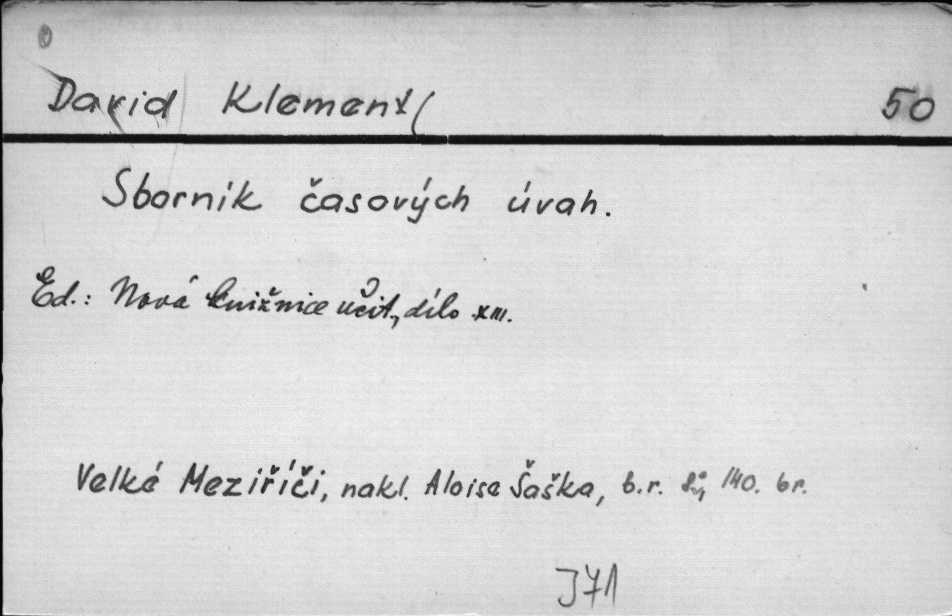 David Klement 50
Sborník časových úvah.
Ed.: Nová knižnice učit, dílo XIII.
Velké Meziříčí, nakl. Aloise Šaška, b.r. 8°, 140. br.
J71